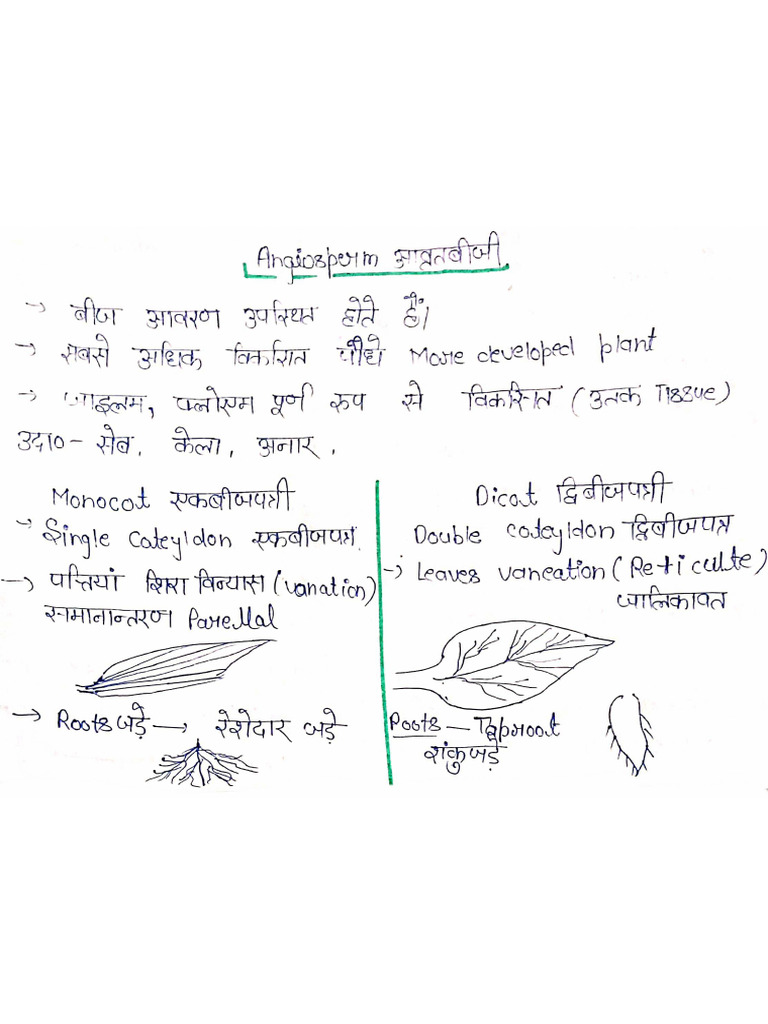 Angiosperm आव्रतबीजी
→ बीज आवरण उपस्थित होते हैं।
→ सबसे अधिक विकसित पौधे More developed plant
→ जाइलम, फ्लोएम पूर्ण रुप से विकसित (उतक Tissue)
उदा०- सेब, केला, अनार.
Monocot एकबीजपत्री
→ Single cateyldon एकबीजपत्र.
→ पत्तियां शिरा विन्यास (vanation)
समानान्तरण Parellal
→ Roots जड़े → रेशेदार जड़े
Dicot द्विबीजपत्री
Double cateyldon द्विबीजपत्र
→ Leaves vaneation (Reticulte)
जालिकावत
Roots — Taproot
शंकुजड़े